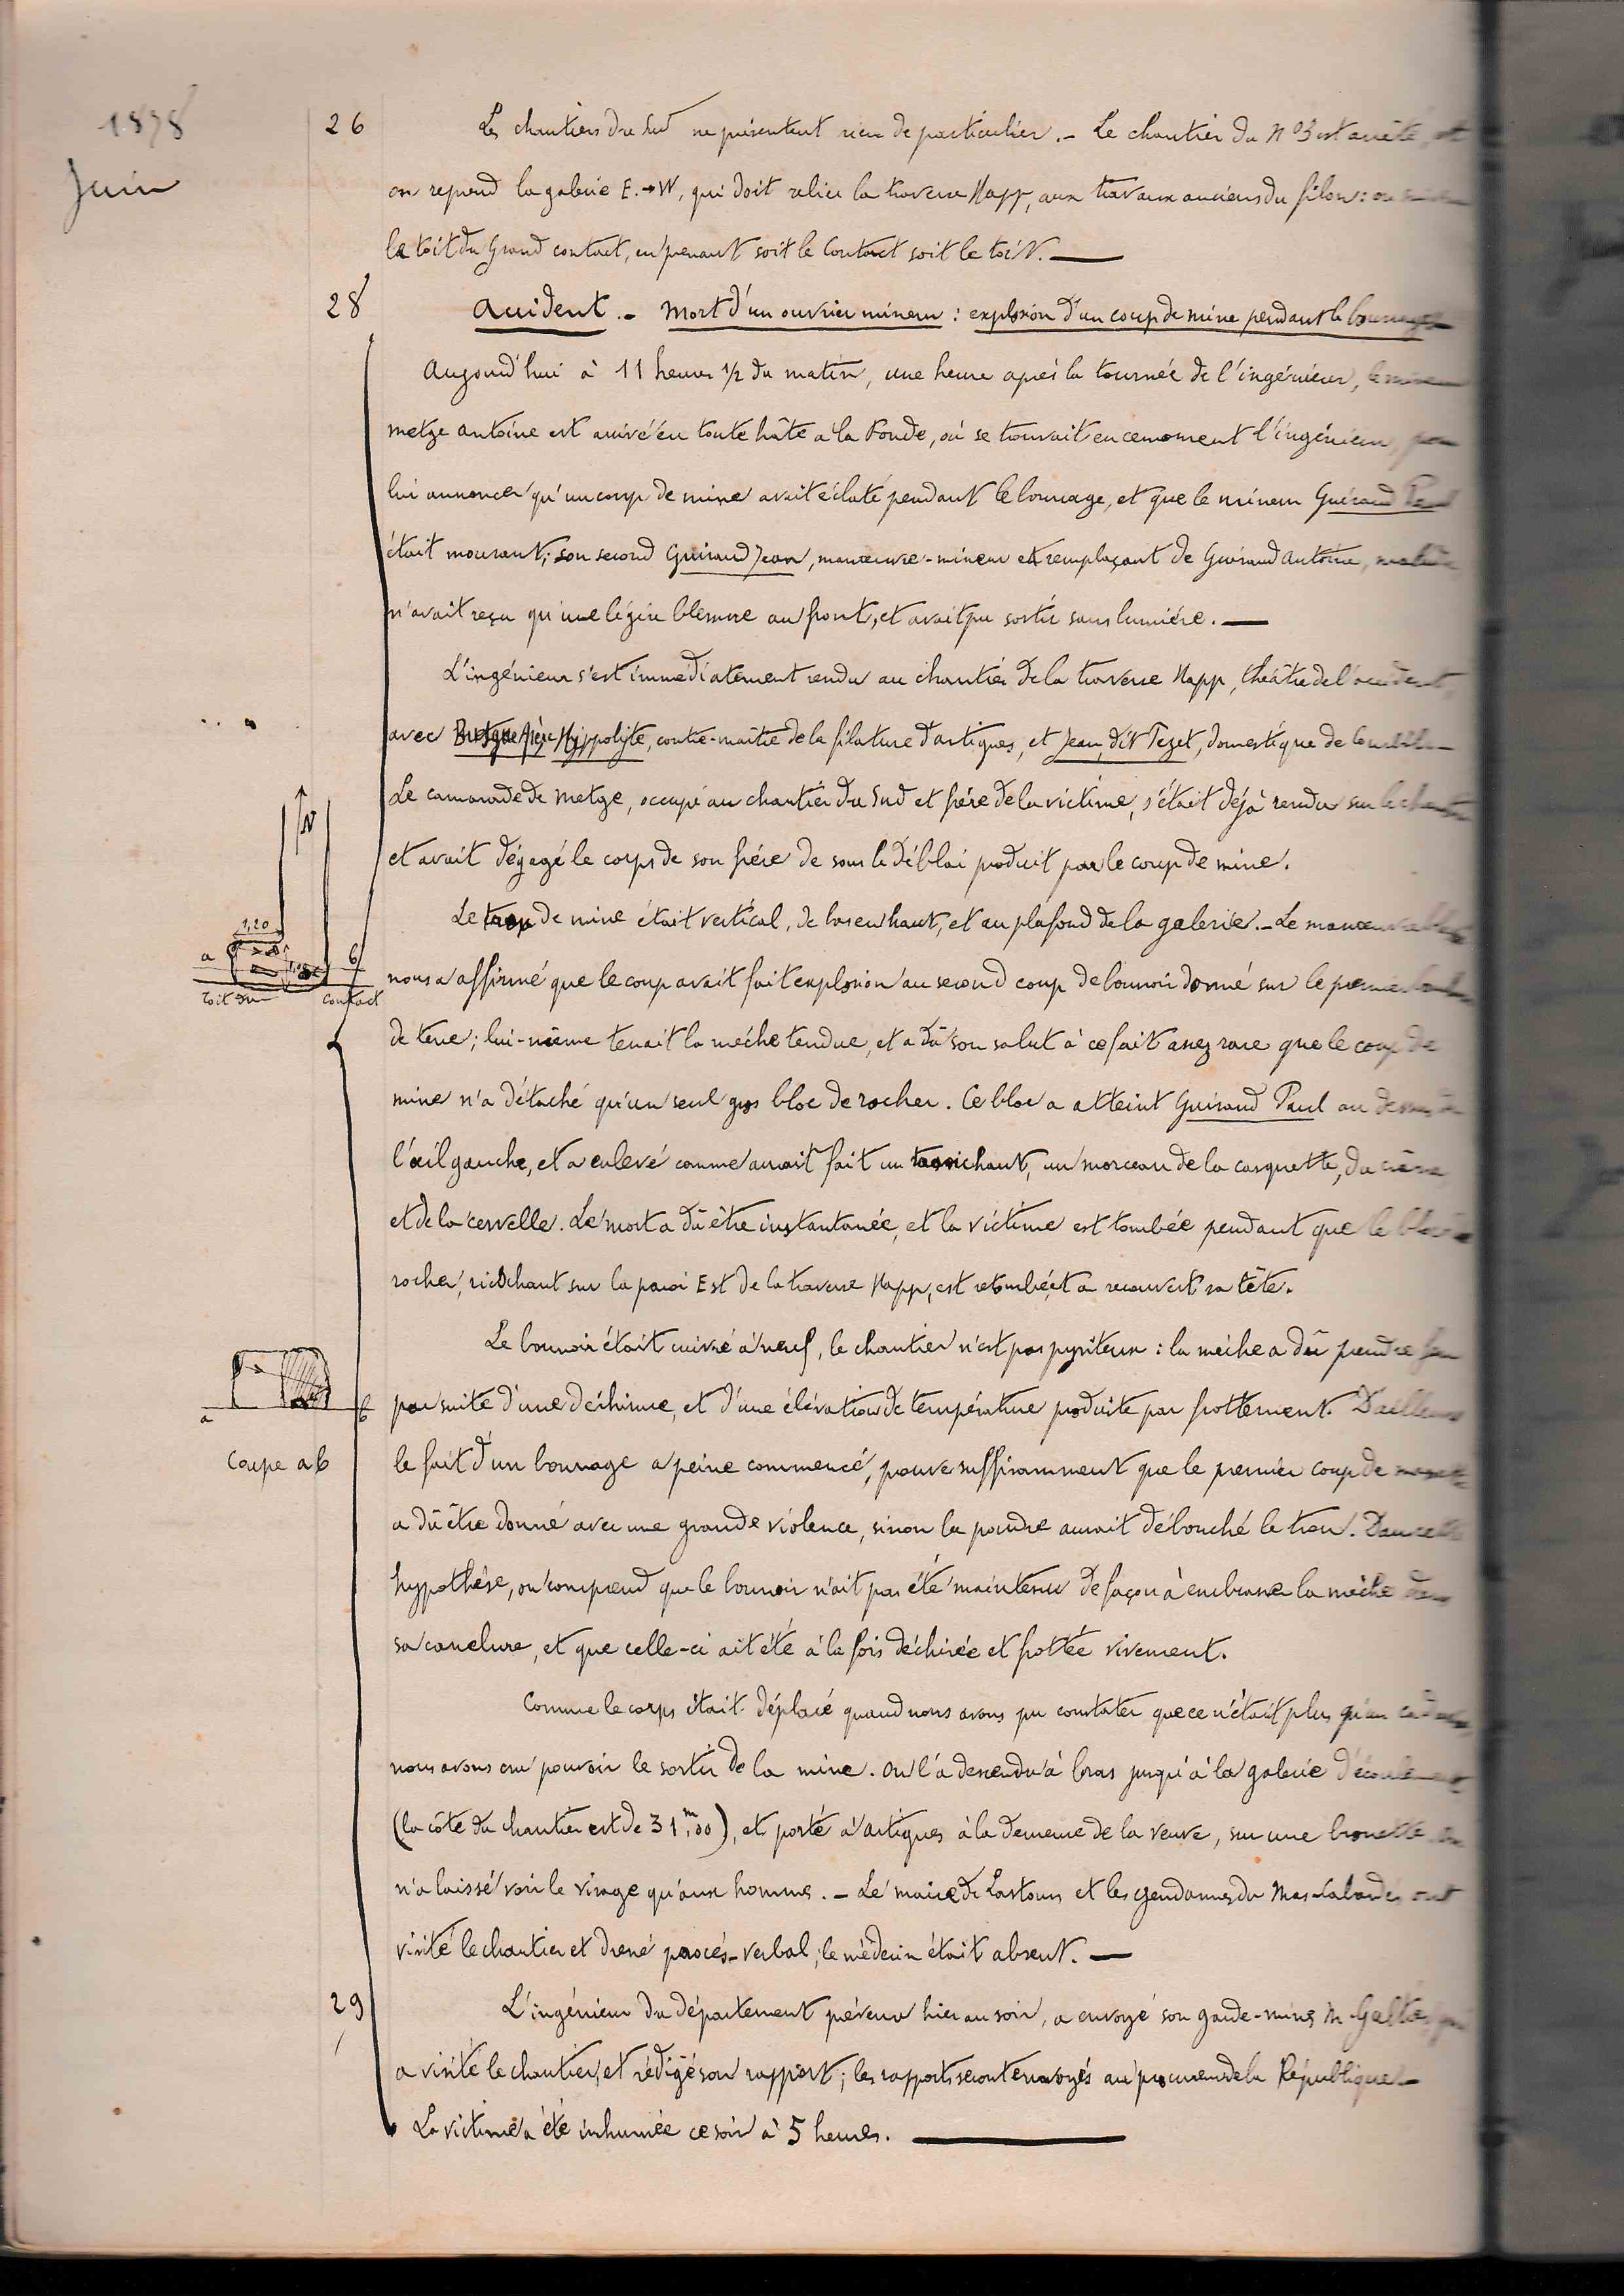 1878
Juin
26 Les chantiers du Sud ne présentent rien de particulier. – Le chantier du N°3 est arrêté, et
on reprend la galerie E.→W, qui doit relier la traverse Happ, aux travaux anciens du filon : on
le toit du Grand contact, en prenant soit le Contact soit le toit. —
28 Accident. – Mort d'un ouvrier mineur : explosion d'un coup de mine pendant le bourrage
Aujourd'hui à 11 heures 1/2 du matin, une heure après la tournée de l'ingénieur, le mineur
Metge Antoine est arrivé en toute hâte à la Fonde, où se trouvait en ce moment l'ingénieur, pour
lui annoncer qu'un coup de mine avait éclaté pendant le bourrage, et que le mineur Guiraud Paul
était mourant; son second Guiraud Jean, manœuvre-mineur et remplaçant de Guiraud Antoine, malade
n'avait reçu qu'une légère blessure au front, et avait pu sortir sans lumière. —
L'ingénieur s'est immédiatement rendu au chantier de la traverse Happ, théâtre de l'accident,
avec Hyppolite, contre-maître de la filature d'artigues, et Jean, dit Tezet, domestique de
Le camarade de Metge, occupé au chantier du Sud et frère de la victime, s'était déjà rendu sur le chantier
et avait dégagé le corps de son frère de sous le déblai produit par le coup de mine.
Le trou de mine était vertical, de bas en haut, et au plafond de la galerie. – Le manœuvre
nous a affirmé que le coup avait fait explosion au second coup de bourroir donné sur le premier
de terre; lui-même tenait la mèche tendue, et a dû son salut à ce fait assez rare que le coup de
mine n'a détaché qu'un seul gros bloc de rocher. Ce bloc a atteint Guiraud Paul au dessus de
l'œil gauche, et a enlevé comme aurait fait un tranchant, un morceau de la casquette, du crâne
et de la cervelle. La mort a dû être instantanée, et la victime est tombée pendant que le bloc de
rocher, ricochant sur la paroi Est de la traverse Happ, est retombé et a recouvert sa tête.
Le bourroir était cuivré à neuf, le chantier n'est pas pyriteux : la mèche a dû prendre feu
par suite d'une déchirure, et d'une élévation de température produite par frottement. D'ailleurs
le fait d'un bourrage à peine commencé, prouve suffisamment que le premier coup de
a dû être donné avec une grande violence, sinon la poudre aurait débouché le trou. Dans cette
hypothèse, on comprend que le bourroir n'ait pas été maintenu de façon à embrasser la mèche dans
sa canelure, et que celle-ci ait été à la fois déchirée et frottée vivement.
Comme le corps était déplacé quand nous avons pu constater que ce n'était plus qu'un cadavre
nous avons cru pouvoir le sortir de la mine. On l'a descendu à bras jusqu'à la galerie d'écoulement
(la côte du chantier est de 31m,00), et porté à artigues à la demeure de la veuve, sur une brouette. on
n'a laissé voir le visage qu'aux hommes. – Le maire de Lastours et les gendarmes du Mas-Cabardès ont
visité le chantier et dressé procès-verbal; le médecin était absent. —
29 L'ingénieur du département prévenu hier au soir, a envoyé son garde-mines M. qui
a visité le chantier, et rédigé son rapport; les rapports seront envoyés au procureur de la République –
La victime a été inhumée ce soir à 5 heures. —
N
1,20
a b
toit du contact
a b
Coupe ab